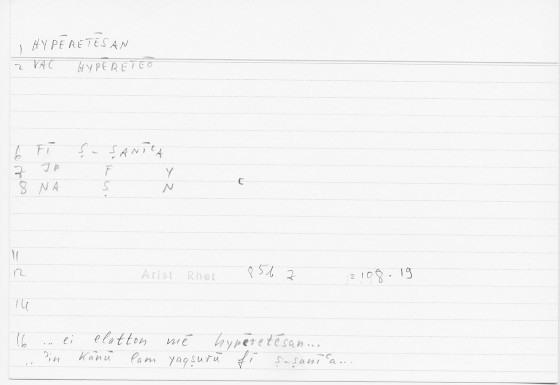 1 HYPĒRETĒSAN
2 VAC HYPĒRETEŌ
6 FĪ Ṣ-ṢANĪʿA
7 JP F Y
8 NA Ṣ N
11
12 Arist Rhet 85b 7 = 108.19
14
16 ... ei elatton mē hypēretēsan...
.. ʾin kānū lam yaqṣurū fī ṣ-ṣanīʿa...